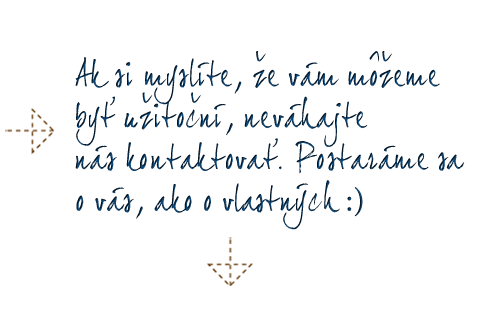 Ak si myslíte, že vám môžeme
byť užitoční, neváhajte
nás kontaktovať. Postaráme sa
o vás, ako o vlastných :)